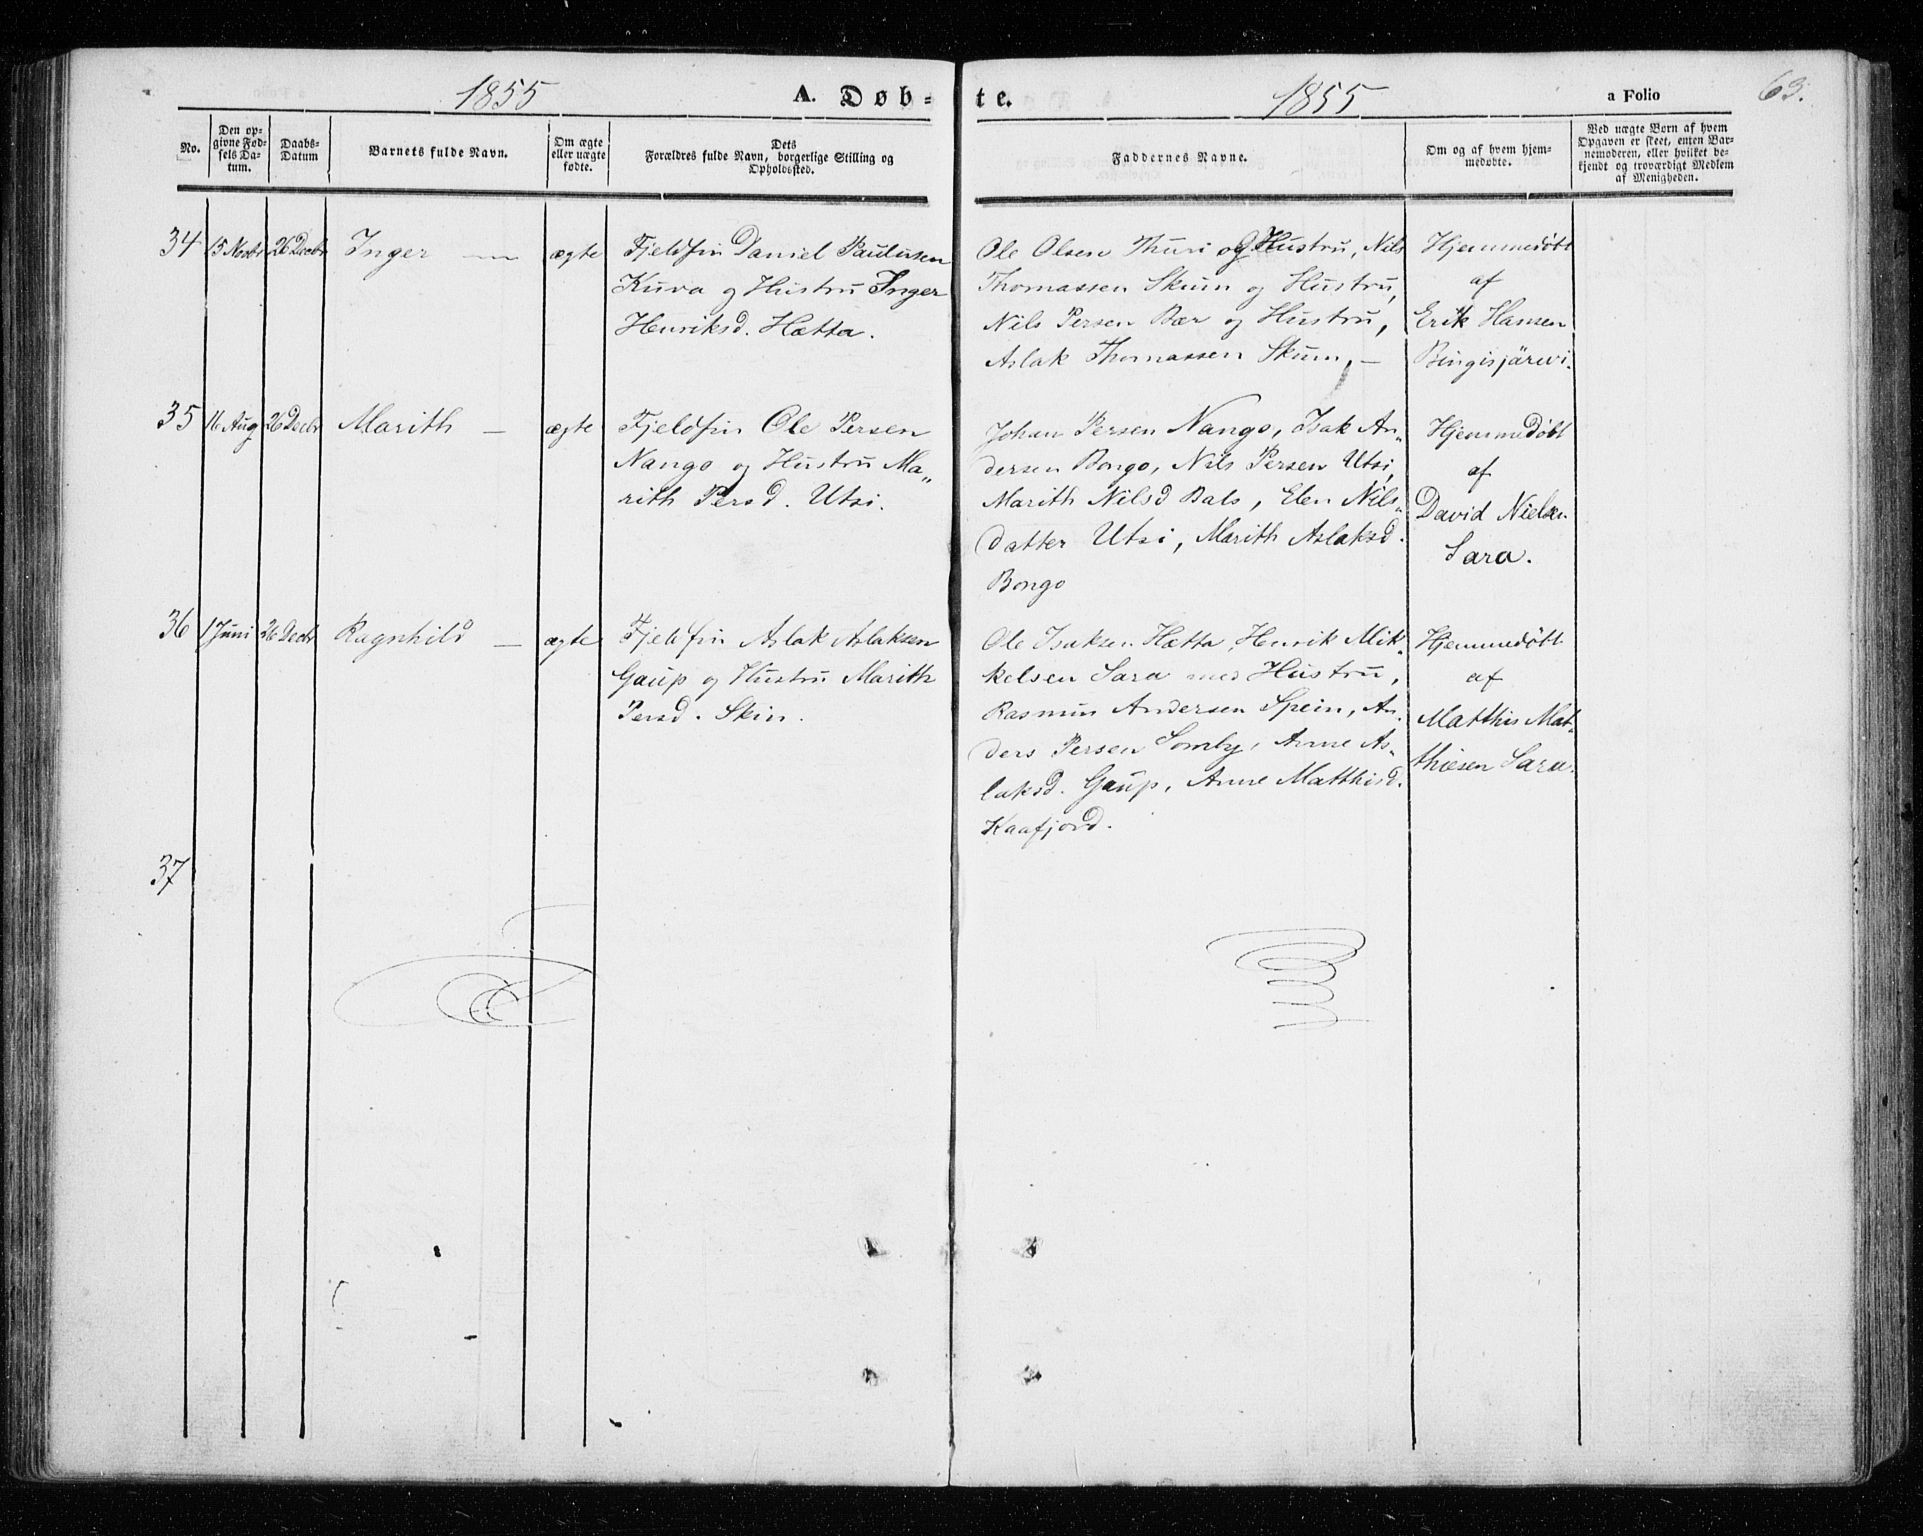 1855 A. Døb- te. 1855 a Folio 63.
No.
Den op-
givne Fød-
sels Da-
tum.
Daabs-
Datum
Barnets fulde Navn.
Om ægte
eller uægte
fødte.
Dets
Forældres fulde Navn, borgerlige Stilling og
Opholdssted.
Faddernes Navne.
Om og af hvem hjem-
medøbte.
Ved uægte Børn af hvem
Opgaven er skeet, enten Bar-
nemoderen, eller hvilket be-
kjendt og troværdigt Medlem
af Menigheden.
34 15 Novbr 26 Decbr Inger — ægte
Fjeldfin Daniel Paulusen
Kuva og Hustru Inger
Henriksd. Hætta.
Ole Olsen Thuri og Hustru, Nils
Thomassen Skum og Hustru,
Nils Persen Bær og Hustru,
Aslak Thomassen Skum, —
Hjemmedøbt
af
Erik Hansen
Bingisjärwi.
35 16 Aug 26 Decbr Marith — ægte
Fjeldfin Ole Persen
Nango og Hustru Ma„
rith Persd. Utsi.
Johan Persen Nango, Isak An„
dersen Bongo, Nils Persen Utsi,
Marith Nilsd Bals, Elen Nils„
datter Utsi, Marith Aslaksd.
Bongo
Hjemmedøbt
af
David Nielsen
Sara.
36 1 Juni 26 Decbr Ragnhild — ægte
Fjeldfin Aslak Aslaksen
Gaup og Hustru Marith
Persd. Skin.
Ole Isaksen Hætta, Henrik Mik„
kelsen Sara med Hustru,
Rasmus Andersen Spein, An„
ders Persen Somby, Anne As„
laksd. Gaup, Anne Matthisd.
Kaafjord.
Hjemmedøbt
af
Matthis Mat„
thiesen Sara.
37